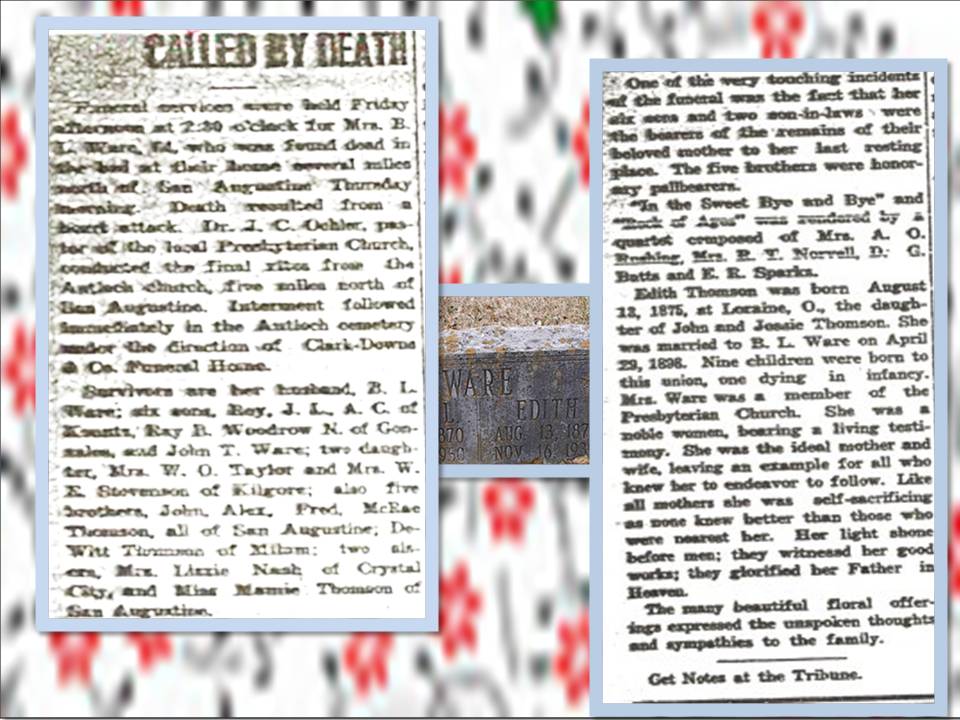 CALLED BY DEATH
Funeral services were held Friday
afternoon at 2:30 o'clock for Mrs. B.
L. Ware, who was found dead in
the bed at their home several miles
north of San Augustine Thursday
morning. Death resulted from a
heart attack. Dr. J. C. Oehler, pas-
tor of the local Presbyterian Church,
conducted the final rites from the
Antioch church, five miles north of
San Augustine. Interment followed
immediately in the Antioch cemetery
under the direction of Clark-Downs
& Co. Funeral Home.
Survivors are her husband, B. L.
Ware; six sons, Roy, J. L., A. C. of
Kountz, Ray B. Woodrow N. of Gon-
zales, and John T. Ware; two daugh-
ter, Mrs. W. O. Taylor and Mrs. W.
E. Stevenson of Kilgore; also five
brothers, John, Alex, Fred, McRae
Thomson, all of San Augustine; De-
Witt Thomson of Milam; two sis-
ers, Mrs. Lizzie Nash of Crystal
City, and Miss Mamie Thomson of
San Augustine.
WARE
L EDITH
870 AUG. 13, 187
950 NOV. 16, 19
One of the very touching incidents
of the funeral was the fact that her
six sons and two son-in-laws were
the bearers of the remains of their
beloved mother to her last resting
place. The five brothers were honor-
ary pallbearers.
"In the Sweet Bye and Bye" and
"Rock of Ages" was rendered by a
quartet composed of Mrs. A. O.
Rushing, Mrs. P. T. Norvell, D. G.
Batts and E. R. Sparks.
Edith Thomson was born August
13, 1875, at Loraine, O., the daugh-
ter of John and Jessie Thomson. She
was married to B. L. Ware on April
29, 1898. Nine children were born to
this union, one dying in infancy.
Mrs. Ware was a member of the
Presbyterian Church. She was a
noble women, bearing a living testi-
mony. She was the ideal mother and
wife, leaving an example for all who
knew her to endeavor to follow. Like
all mothers she was self-sacrificing
as none knew better than those who
were nearest her. Her light shone
before men; they witnessd her good
works; they glorified her Father in
Heaven.
The many beautiful floral offer-
ings expressed the unspoken thoughts
and sympathies to the family.
Get Notes at the Tribune.